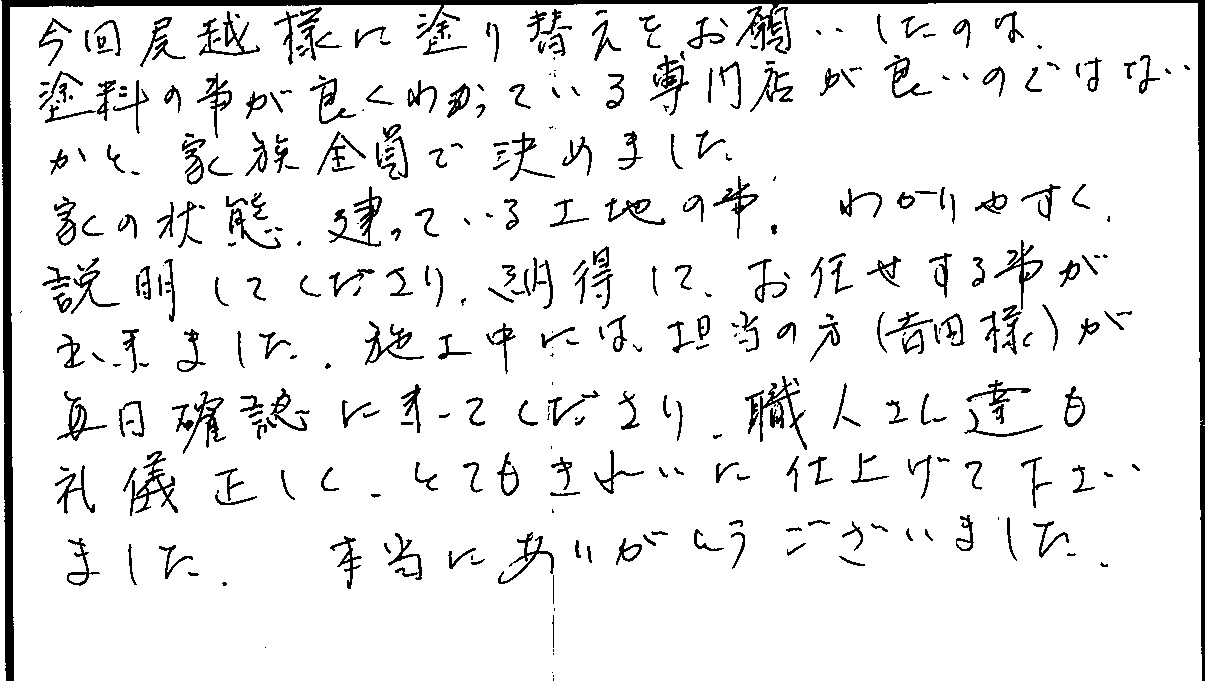 今回尾越様に塗り替えをお願いしたのは、
塗料の事が良くわかっている専門店が良いのではない
かと、家族全員で決めました。
家の状態、建っている土地の事。わかりやすく、
説明してくださり、納得して、お任せする事が
出来ました。施工中には、担当の方(吉田様)が
毎日確認に来てくださり、職人さん達も
礼儀正しく、とてもきれいに仕上げて下さい
ました。 本当にありがとうございました。